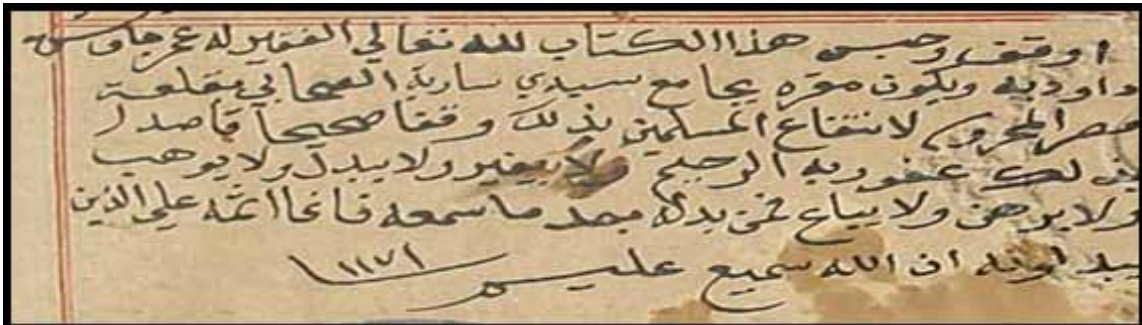 اوقف وحبس هذا الكتاب لله تعالي الفقير له عمر جاويش
داوديه ويكون مقره بجامع سيدي سارية الصحابي بقلعة
مصر المحروسه لانتفاع المسلمين بذلك وقفا صحيحا قاصدا
بذلك عفو ربه الرحيم ولا يغير ولا يبدل ولا يوهب
ولا يرهن ولا يباع فمن بدله بعد ما سمعه فانما اثمه علي الذين
يبدلونه ان الله سميع عليم ١١٧١